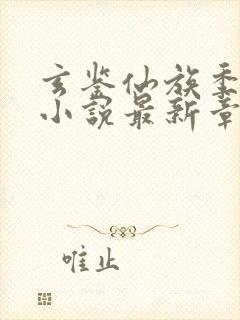 玄鉴仙族季
小说最新章
唯止